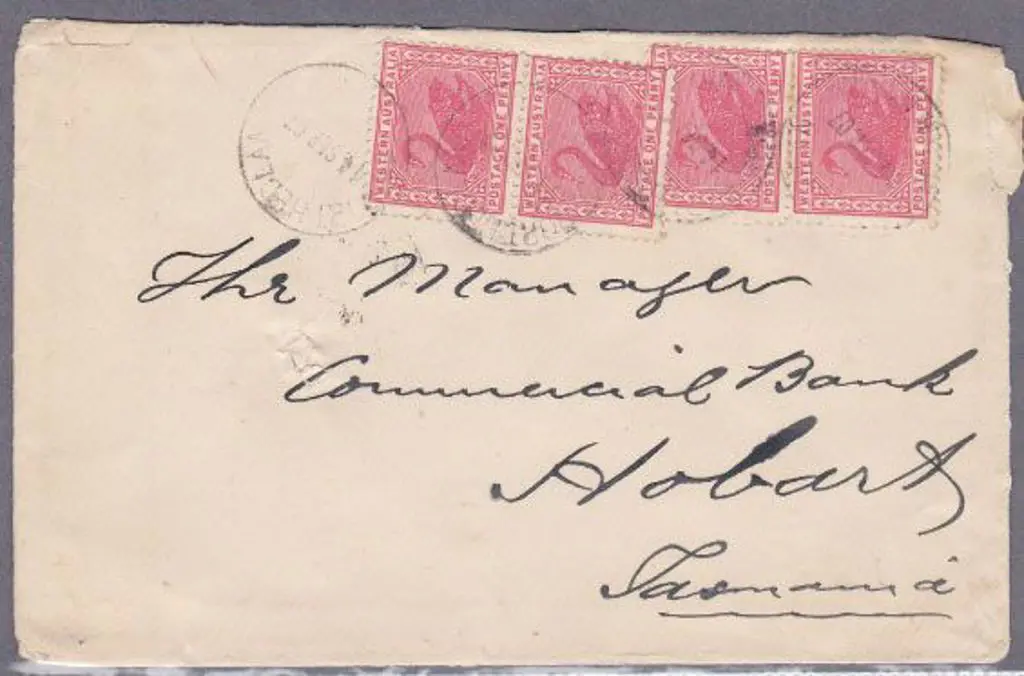 WESTERN AUSTRALIA
POSTAGE ONE PENNY
WESTERN AUSTRALIA
POSTAGE ONE PENNY
POSTAGE ONE PENNY
WESTERN AUSTRALIA
POSTAGE ONE PENNY
The Manager
Commercial Bank
Hobart
Tasmania